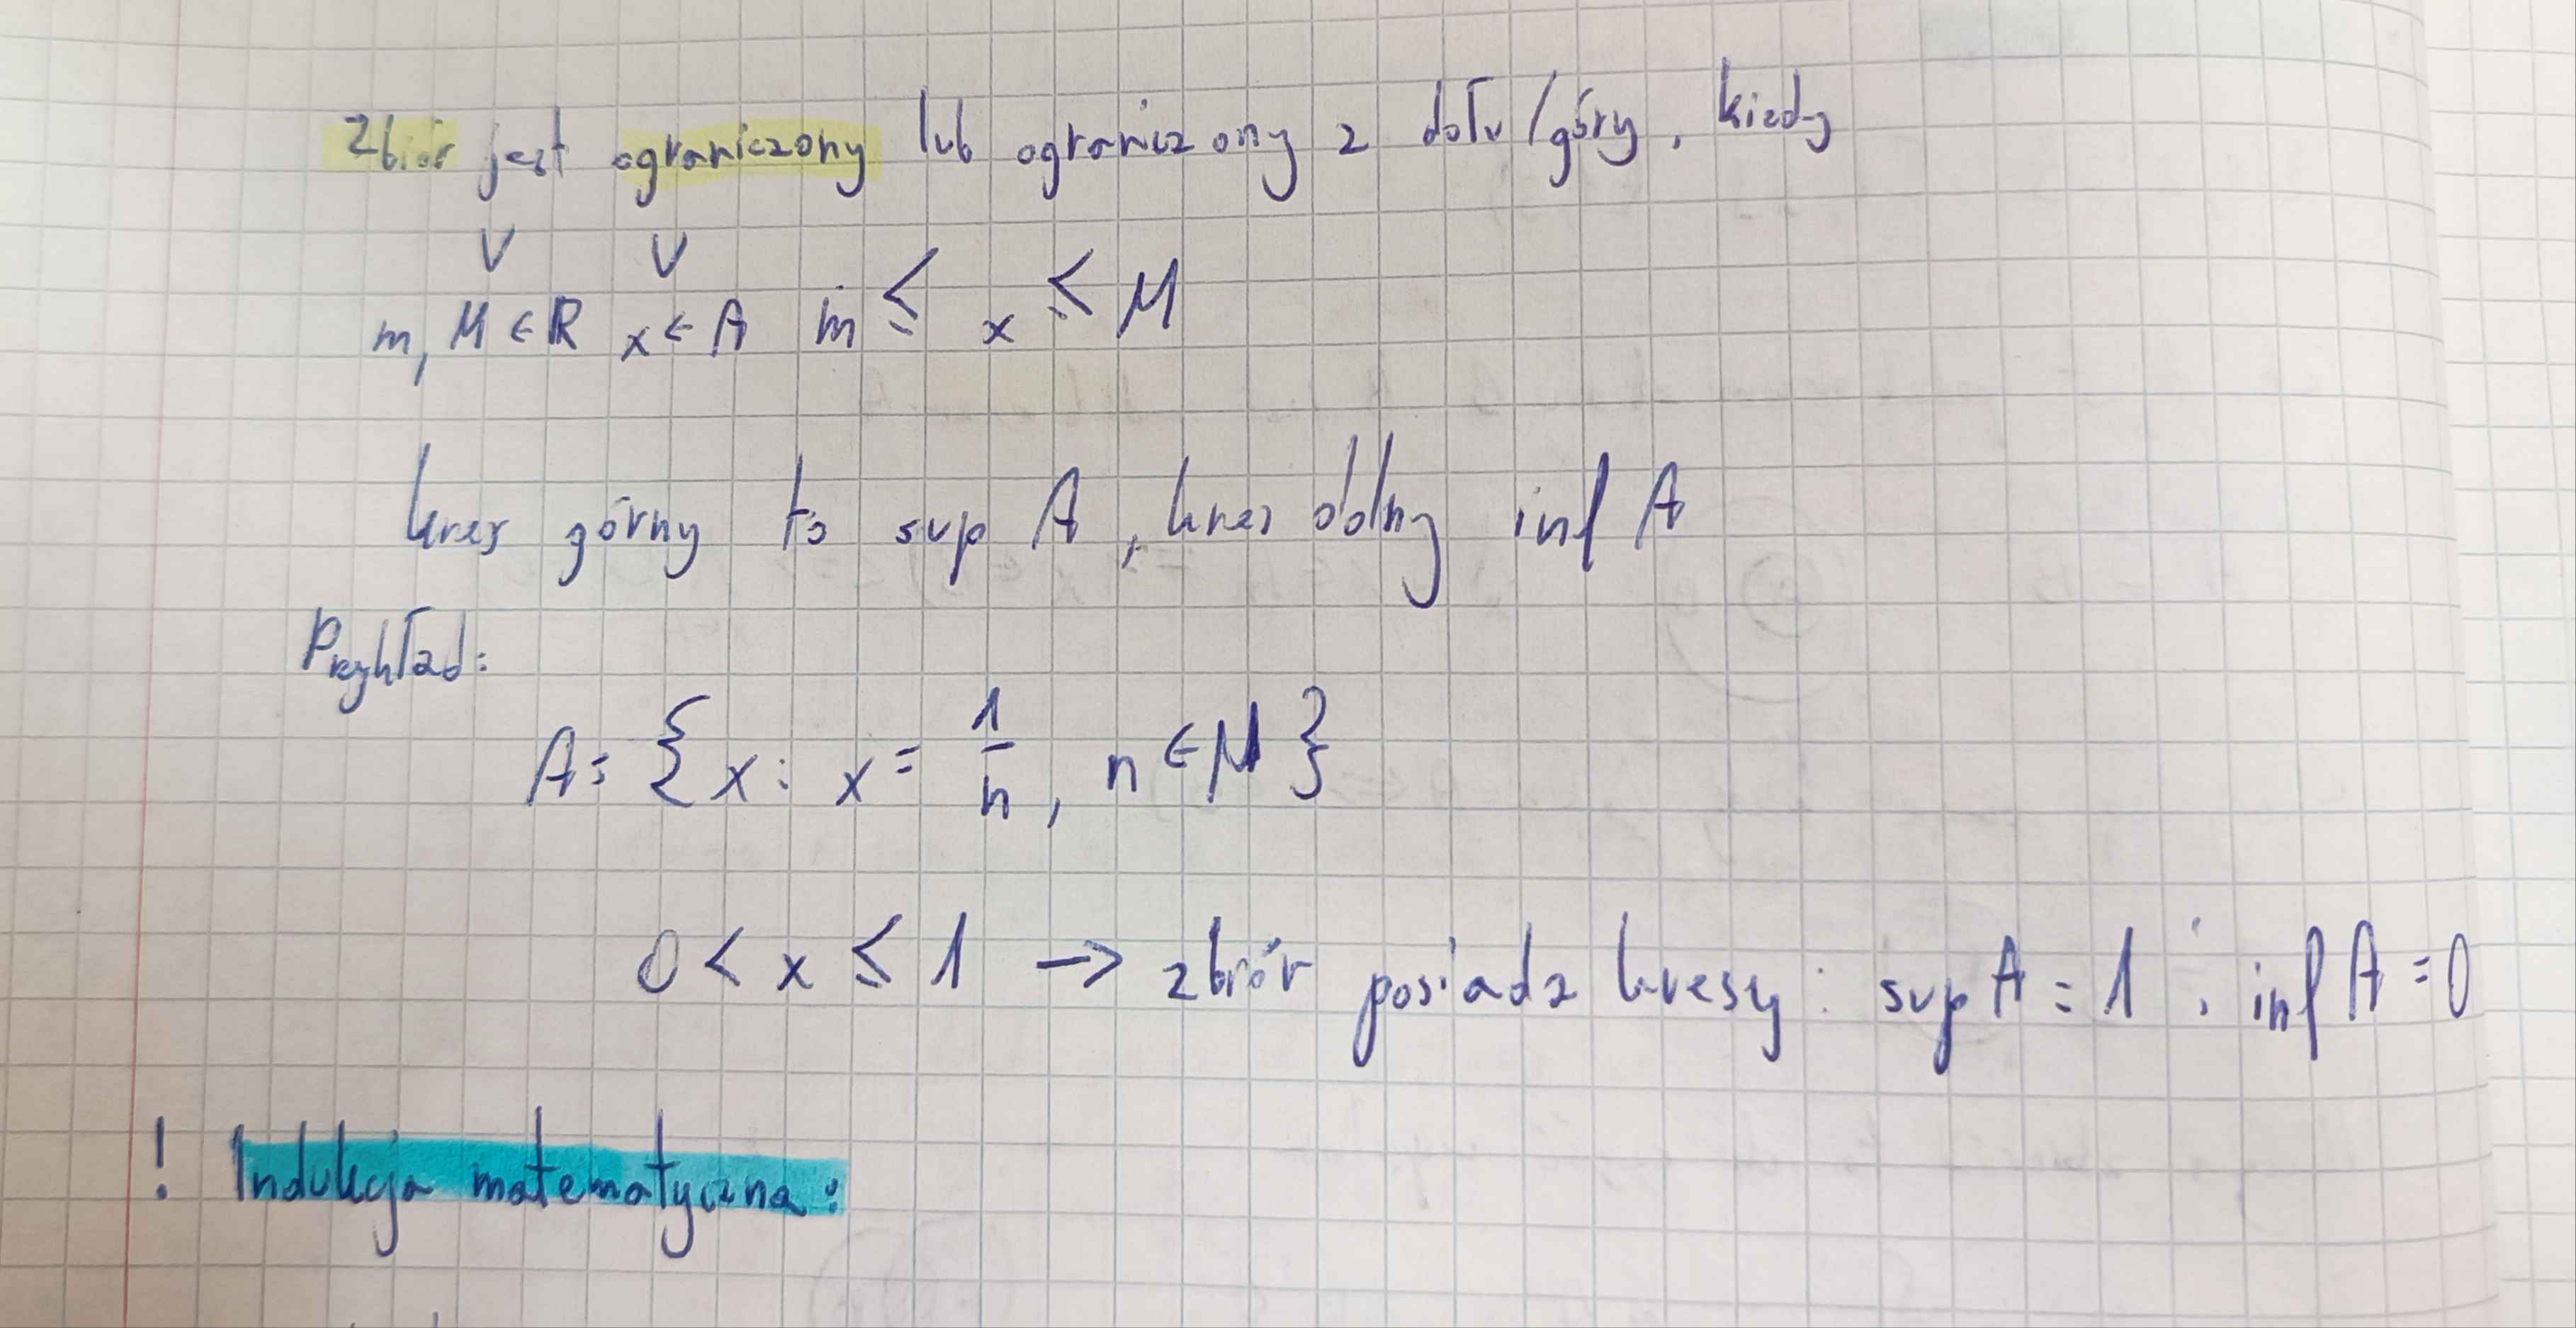 Zbiór jest ograniczony lub ograniczony z dołu/góry, kiedy
V V
m, M ∈ R x ∈ A m ≤ x ≤ M
kres górny to sup A, kres dolny inf A
Przykład:
A = {x: x = 1/n, n ∈ N}
0 < x ≤ 1 → zbiór posiada kresy: sup A = 1 ; inf A = 0
! Indukcja matematyczna: